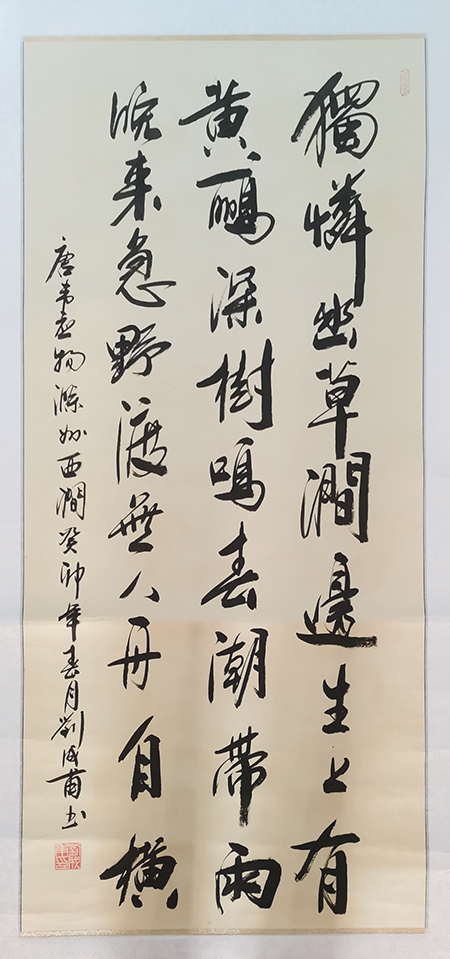 獨憐幽草澗邊生上有
黄鸝深樹鳴春潮帶雨
晚来急野渡無人舟自橫
唐韋應物滁州西澗癸卯年春月劉成甫书